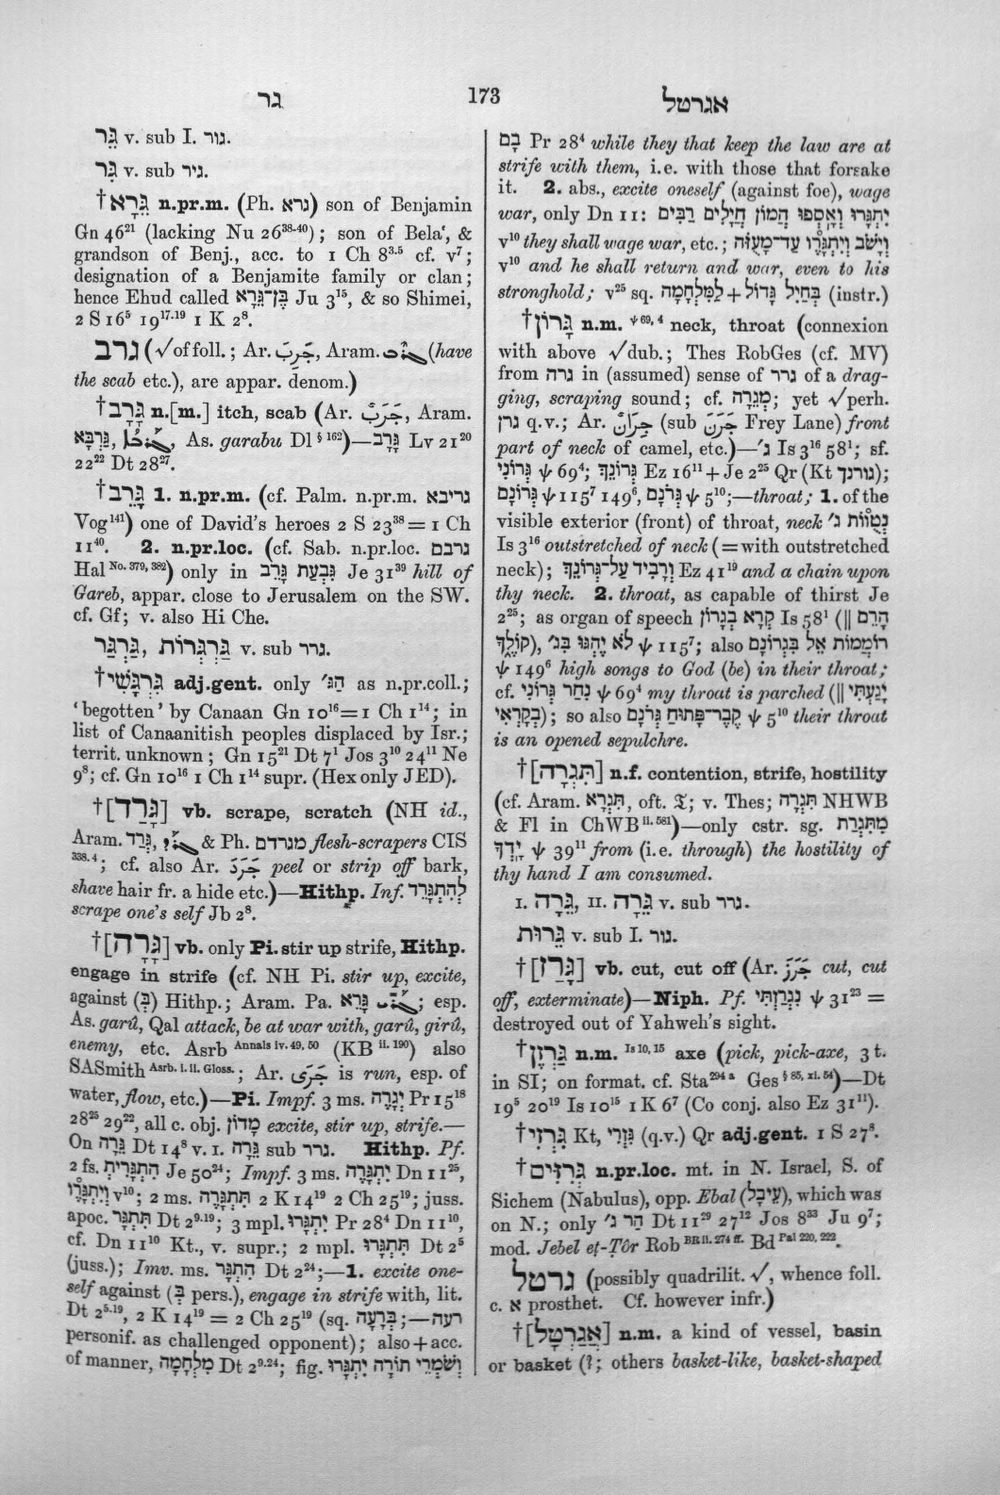 גר
173
אגרטל
גֵּר v. sub I. גור.
גִּר v. sub גיר.
†גֵּרָא n.pr.m. (Ph. גרא) son of Benjamin
Gn 46²¹ (lacking Nu 26³⁸⁻⁴⁰); son of Bela‘, &
grandson of Benj., acc. to 1 Ch 8³·⁵ cf. v⁷;
designation of a Benjamite family or clan;
hence Ehud called בֶּן־גֵּרָא Ju 3¹⁵, & so Shimei,
2 S 16⁵ 19¹⁷·¹⁹ 1 K 2⁸.
גרב (√ of foll.; Ar. جَرِبَ, Aram. (have
the scab etc.), are appar. denom.)
†גָּרָב n.[m.] itch, scab (Ar. جَرَبٌ, Aram.
גַּרְבָּא, As. garabu Dl § ¹⁶²)—גָּרָב Lv 21²⁰
22²² Dt 28²⁷.
†גָּרֵב 1. n.pr.m. (cf. Palm. n.pr.m. גריבא
Vog¹⁴¹) one of David's heroes 2 S 23³⁸ = 1 Ch
11⁴⁰. 2. n.pr.loc. (cf. Sab. n.pr.loc. גרבם
Hal No. 379, 382) only in גִּבְעַת גָּרֵב Je 31³⁹ hill of
Gareb, appar. close to Jerusalem on the SW.
cf. Gf; v. also Hi Che.
גַּרְגַּר, גַּרְגְּרוֹת v. sub גרר.
†גִּרְגָּשִׁי adj.gent. only הַגִּ׳ as n.pr.coll.;
‘begotten’ by Canaan Gn 10¹⁶ = 1 Ch 1¹⁴; in
list of Canaanitish peoples displaced by Isr.;
territ. unknown; Gn 15²¹ Dt 7¹ Jos 3¹⁰ 24¹¹ Ne
9⁸; cf. Gn 10¹⁶ 1 Ch 1¹⁴ supr. (Hex only JED).
†[גָּרַד] vb. scrape, scratch (NH id.,
Aram. גְּרַד, & Ph. מגרדם flesh-scrapers CIS
338. 4; cf. also Ar. جَرَدَ peel or strip off bark,
shave hair fr. a hide etc.)—Hithp. Inf. לְהִתְגָּרֵד
scrape one's self Jb 2⁸.
†[גָּרָה] vb. only Pi. stir up strife, Hithp.
engage in strife (cf. NH Pi. stir up, excite,
against (בְּ) Hithp.; Aram. Pa. גָּרֵא; esp.
As. garû, Qal attack, be at war with, garû, girû,
enemy, etc. Asrb Annals iv. 49, 50 (KB ii. 190) also
SASmith Asrb. i. ii. Gloss.; Ar. جَرَى is run, esp. of
water, flow, etc.)—Pi. Impf. 3 ms. יְגָרֶה Pr 15¹⁸
28²⁵ 29²², all c. obj. מָדוֹן excite, stir up, strife.—
On גֵּרָה Dt 14⁸ v. 1. גֵּרָה sub גרר. Hithp. Pf.
2 fs. הִתְגָּרִית Je 50²⁴; Impf. 3 ms. יִתְגָּרֶה Dn 11²⁵,
וְיִתְגָּרוּ v¹⁰; 2 ms. תִּתְגָּרֶה 2 K 14¹⁹ 2 Ch 25¹⁹; juss.
apoc. תִּתְגָּר Dt 2⁹·¹⁹; 3 mpl. יִתְגָּרוּ Pr 28⁴ Dn 11¹⁰,
cf. Dn 11¹⁰ Kt., v. supr.; 2 mpl. תִּתְגָּרוּ Dt 2⁵
(juss.); Imv. ms. הִתְגָּר Dt 2²⁴;—1. excite one-
self against (בְּ pers.), engage in strife with, lit.
Dt 2⁵·¹⁹, 2 K 14¹⁹ = 2 Ch 25¹⁹ (sq. בְּרָעָה;—רעה
personif. as challenged opponent); also + acc.
of manner, מִלְחָמָה Dt 2⁹·²⁴; fig. וְשֹׁמְרֵי תוֹרָה יִתְגָּרוּ
בָם Pr 28⁴ while they that keep the law are at
strife with them, i.e. with those that forsake
it. 2. abs., excite oneself (against foe), wage
war, only Dn 11: יִתְגָּרוּ וְאָסְפוּ הֲמוֹן חֲיָלִים רַבִּים
v¹⁰ they shall wage war, etc.; וְיָשֹׁב וְיִתְגָּרֶו עַד־מָעֻזֹּה
v¹⁰ and he shall return and war, even to his
stronghold; v²⁵ sq. לַמִּלְחָמָה + בְּחַיִל גָּדוֹל (instr.)
†גָּרוֹן n.m. ψ 69, 4 neck, throat (connexion
with above √ dub.; Thes RobGes (cf. MV)
from גרה in (assumed) sense of גרר of a drag-
ging, scraping sound; cf. מְגֵרָה; yet √ perh.
גרן q.v.; Ar. جِرَانٌ (sub جَرَنَ Frey Lane) front
part of neck of camel, etc.)—ג׳ Is 3¹⁶ 58¹; sf.
גְּרוֹנִי ψ 69⁴; גְּרוֹנֵךְ Ez 16¹¹ + Je 2²⁵ Qr (Kt גורנך);
גְּרוֹנָם ψ 115⁷ 149⁶, גְּרֹנָם ψ 5¹⁰;—throat; 1. of the
visible exterior (front) of throat, neck נְטֻוֹות ג׳
Is 3¹⁶ outstretched of neck (= with outstretched
neck); וְרָבִיד עַל־גְּרוֹנֵךְ Ez 41¹⁹ and a chain upon
thy neck. 2. throat, as capable of thirst Je
2²⁵; as organ of speech קְרָא בְגָרוֹן Is 58¹ (|| הָרֵם
קוֹלֶךָ), לֹא יֶהְגּוּ בִּג׳ ψ 115⁷; also רוֹמֲמוֹת אֵל בִּגְרוֹנָם
ψ 149⁶ high songs to God (be) in their throat;
cf. נִחַר גְּרוֹנִי ψ 69⁴ my throat is parched (|| יָגַעְתִּי
בְקָרְאִי); so also קֶבֶר־פָּתוּחַ גְּרֹנָם ψ 5¹⁰ their throat
is an opened sepulchre.
†[תִּגְרָה] n.f. contention, strife, hostility
(cf. Aram. תִּגְרָא, oft. 𝔗; v. Thes; תִּגְרָה NHWB
& Fl in ChWB ii. 581)—only cstr. sg. מִתִּגְרַת
יָדְךָ ψ 39¹¹ from (i.e. through) the hostility of
thy hand I am consumed.
I. גֵּרָה, II. גֵּרָה v. sub גרר.
גֵּרוּת v. sub I. גור.
†[גָּרַז] vb. cut, cut off (Ar. جَرَزَ cut, cut
off, exterminate)—Niph. Pf. נִגְרַזְתִּי ψ 31²³ =
destroyed out of Yahweh's sight.
†גַּרְזֶן n.m. Is 10, 15 axe (pick, pick-axe, 3 t.
in SI; on format. cf. Sta²⁹⁴ ᵃ Ges § 85, xi. 54)—Dt
19⁵ 20¹⁹ Is 10¹⁵ 1 K 6⁷ (Co conj. also Ez 31¹¹).
†גִּרְזִי Kt, גִּזְרִי (q.v.) Qr adj.gent. 1 S 27⁸.
†גְּרִזִים n.pr.loc. mt. in N. Israel, S. of
Sichem (Nabulus), opp. Ebal (עֵיבָל), which was
on N.; only הַר ג׳ Dt 11²⁹ 27¹² Jos 8³³ Ju 9⁷;
mod. Jebel eṭ-Ṭôr Rob BR ii. 274 ff. Bd Pal 220, 222.
גרטל (possibly quadrilit. √, whence foll.
c. א prosthet. Cf. however infr.)
†[אֲגַרְטָל] n.m. a kind of vessel, basin
or basket (?; others basket-like, basket-shaped